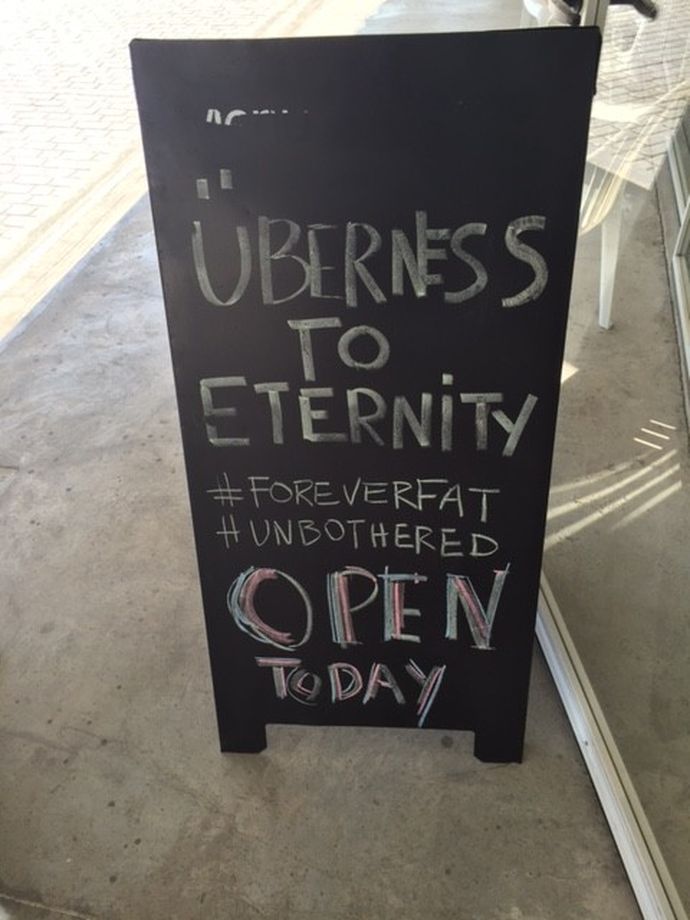 ÜBERNESS
TO
ETERNITY
#FOREVERFAT
#UNBOTHERED
OPEN
TODAY